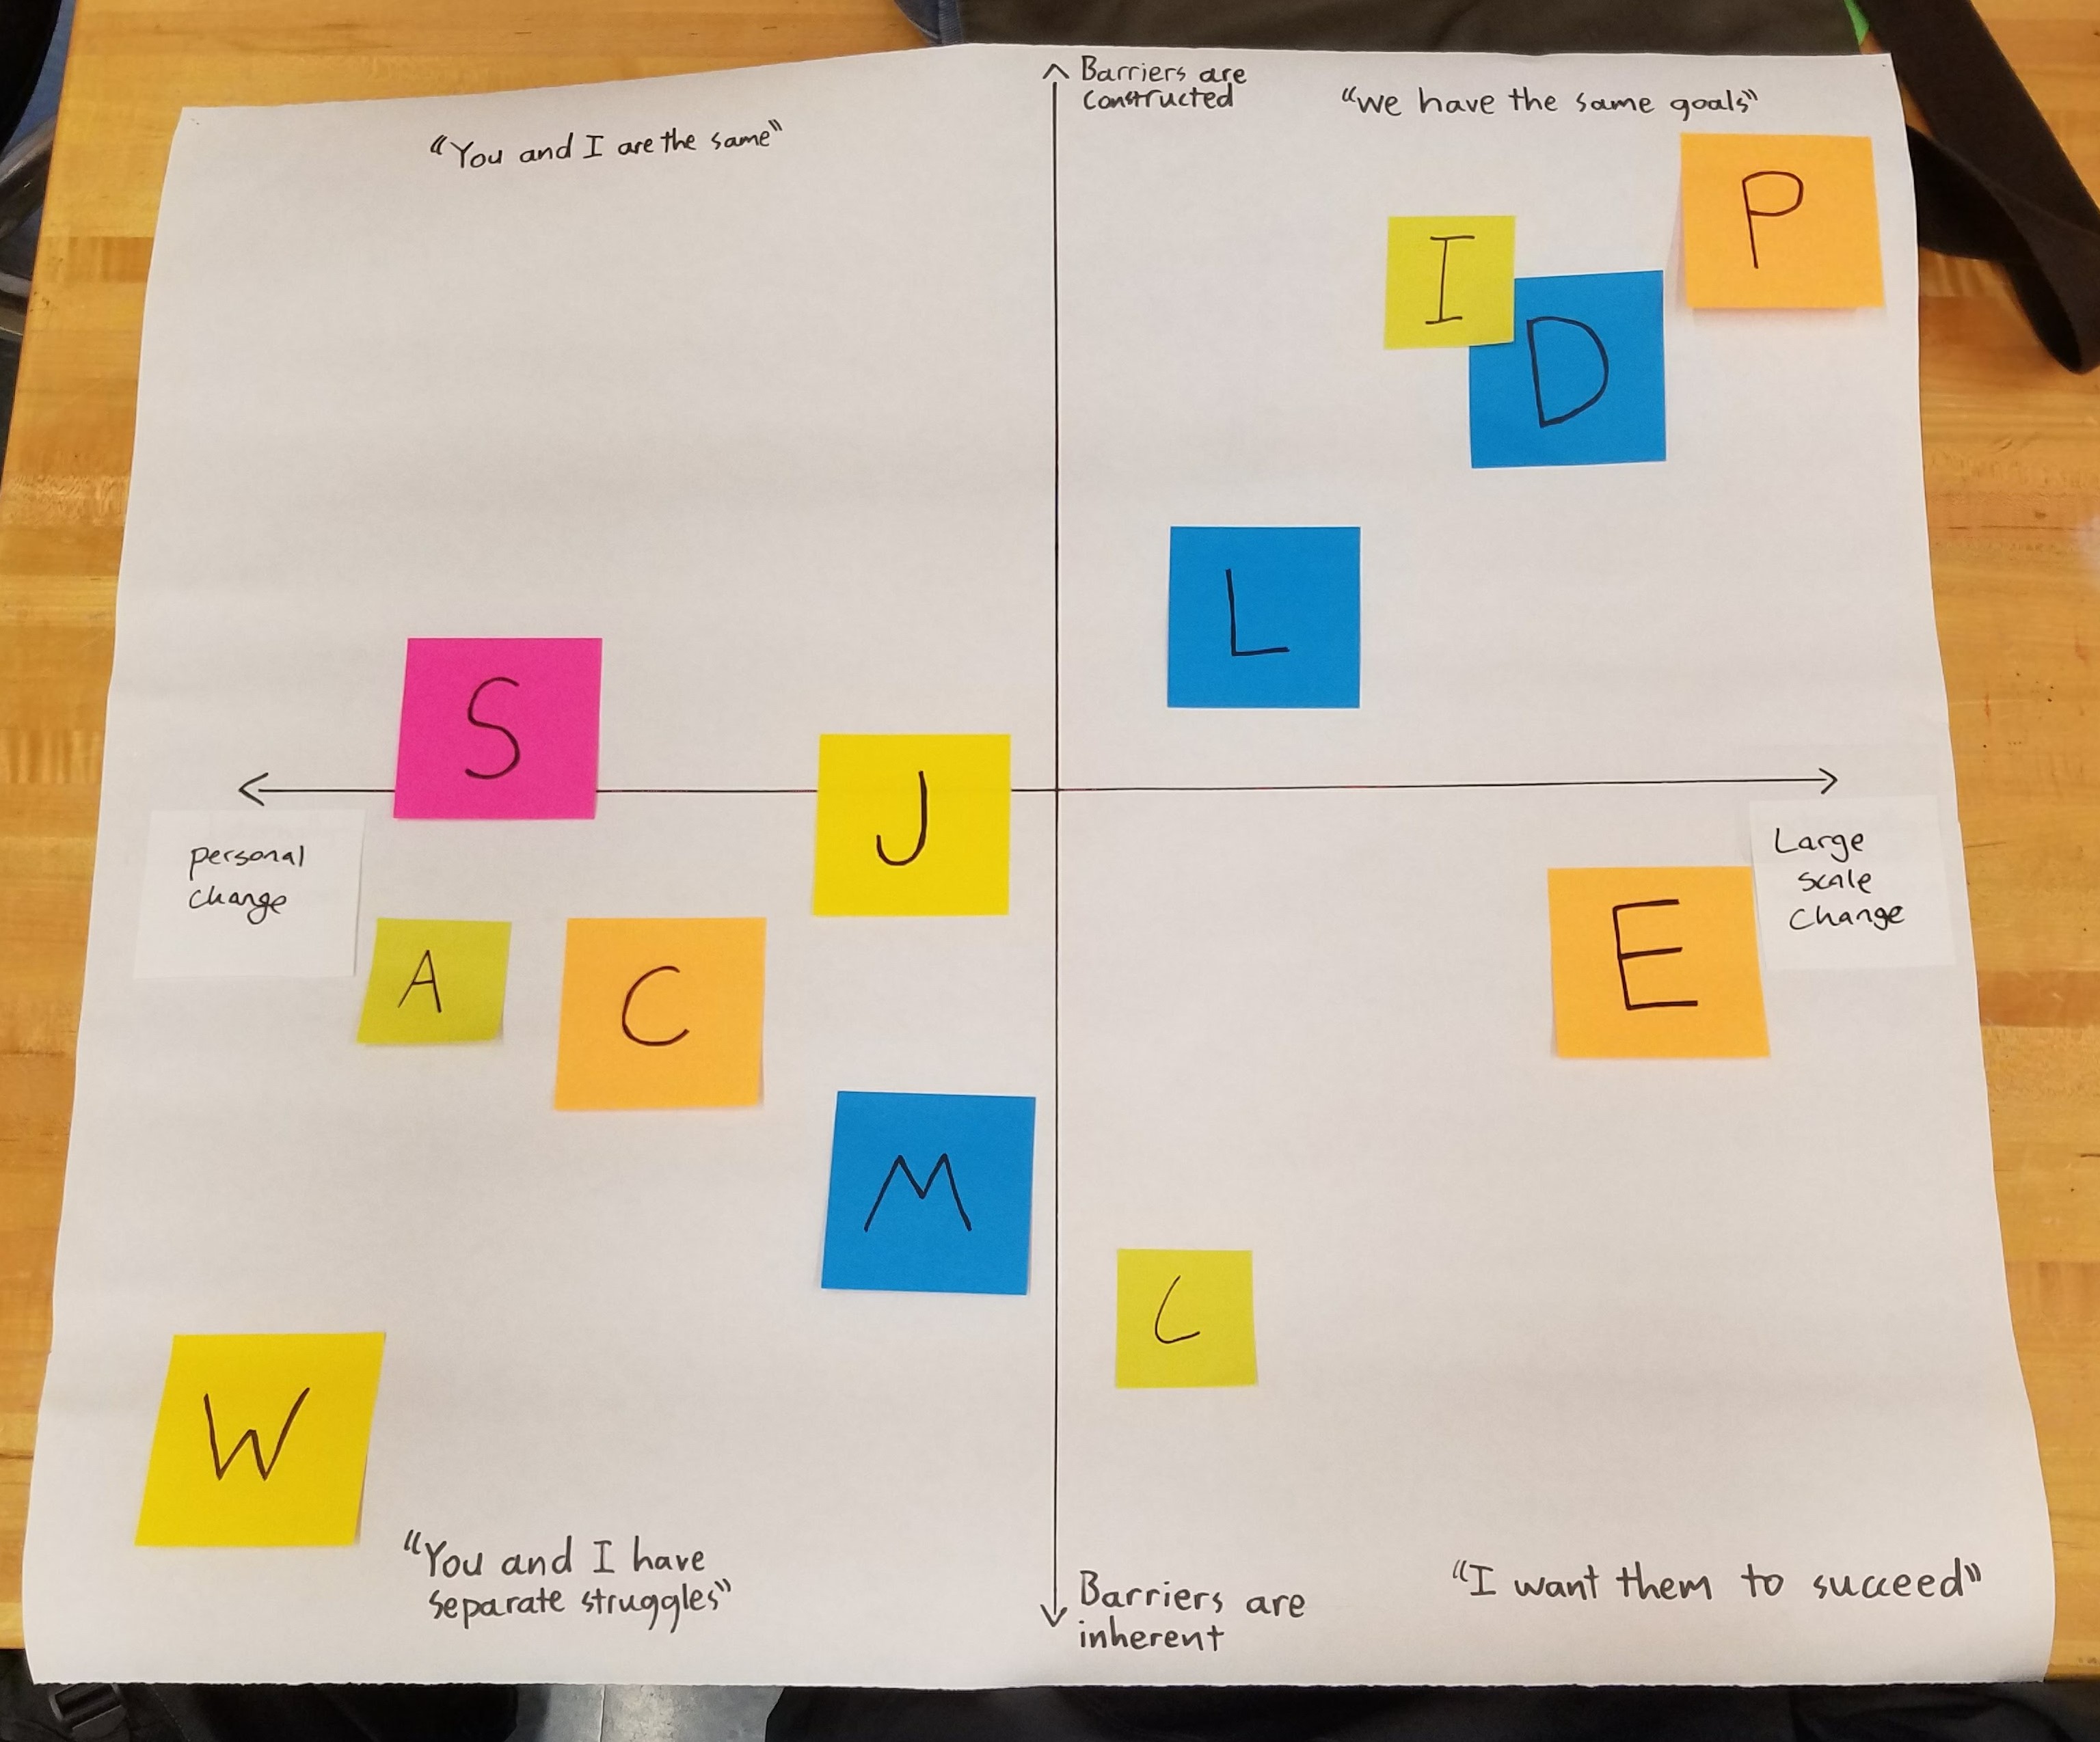 Barriers are
constructed
"You and I are the same"
"we have the same goals"
P
I
D
L
S
J
personal
change
Large
scale
change
A
C
E
M
C
W
"You and I have
separate struggles"
Barriers are
inherent
"I want them to succeed"